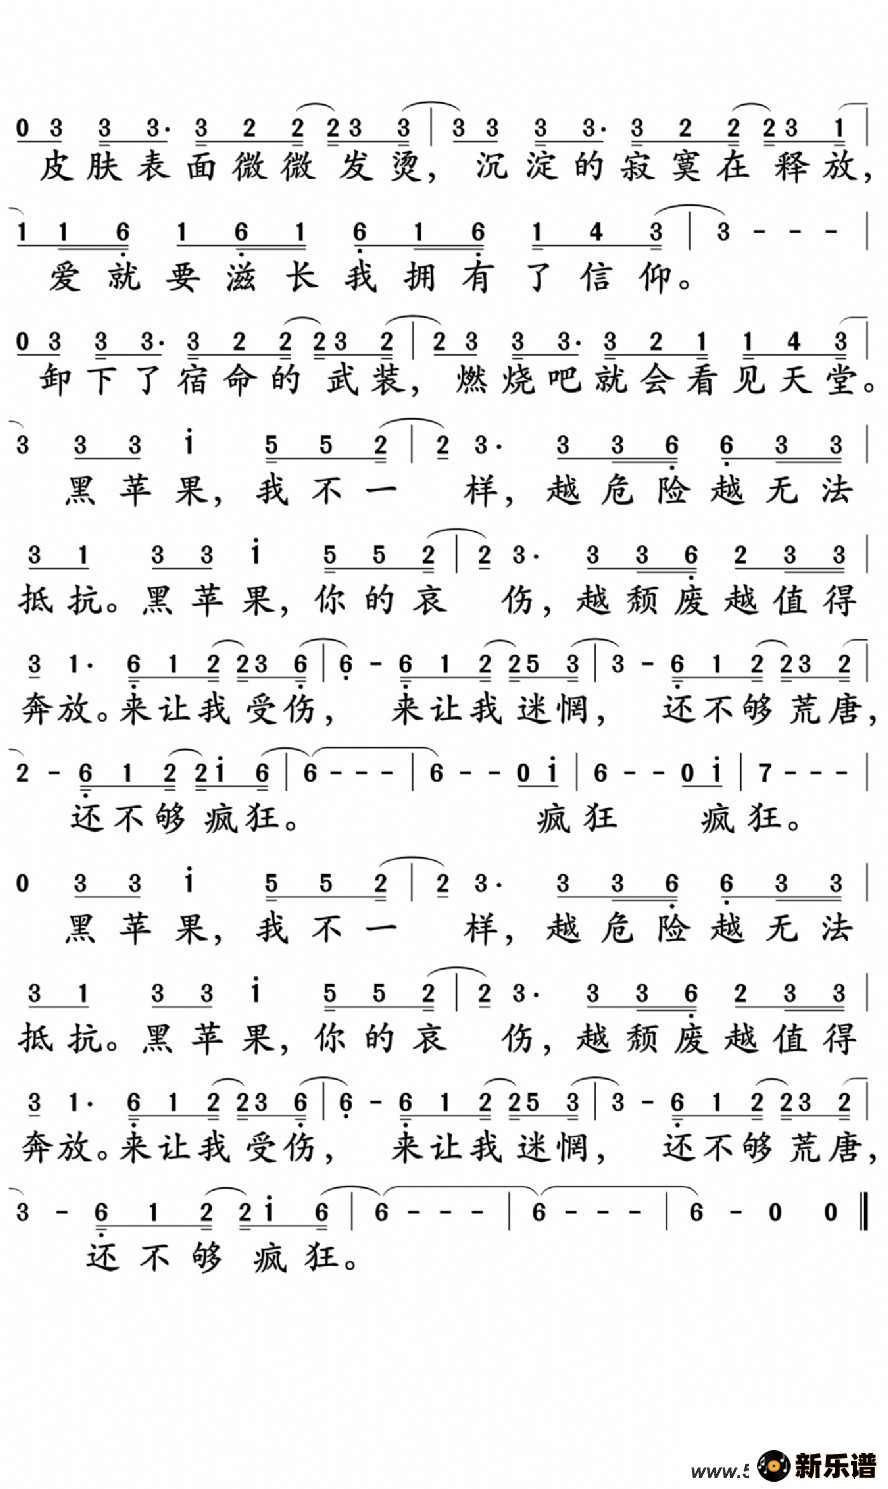 0 3 3 3· 3 2 2 2 3 3 | 3 3 3 3· 3 2 2 2 3 1 |
皮肤表面微微发烫，沉淀的寂寞在释放，
1 1 6 1 6 1 6 1 6 1 4 3 | 3 - - - |
爱就要滋长我拥有了信仰。
0 3 3 3· 3 2 2 2 3 2 | 2 3 3 3· 3 2 1 1 4 3 |
卸下了宿命的武装，燃烧吧就会看见天堂。
3 3 3 i 5 5 2 | 2 3· 3 3 6 6 3 3 |
黑苹果，我不一样，越危险越无法
3 1 3 3 i 5 5 2 | 2 3· 3 3 6 2 3 3 |
抵抗。黑苹果，你的哀伤，越颓废越值得
3 1· 6 1 2 2 3 6 | 6 - 6 1 2 2 5 3 | 3 - 6 1 2 2 3 2 |
奔放。来让我受伤，来让我迷惘，还不够荒唐，
2 - 6 1 2 2 i 6 | 6 - - - | 6 - - 0 i | 6 - - 0 i | 7 - - - |
还不够疯狂。疯狂疯狂。
0 3 3 i 5 5 2 | 2 3· 3 3 6 6 3 3 |
黑苹果，我不一样，越危险越无法
3 1 3 3 i 5 5 2 | 2 3· 3 3 6 2 3 3 |
抵抗。黑苹果，你的哀伤，越颓废越值得
3 1· 6 1 2 2 3 6 | 6 - 6 1 2 2 5 3 | 3 - 6 1 2 2 3 2 |
奔放。来让我受伤，来让我迷惘，还不够荒唐，
3 - 6 1 2 2 i 6 | 6 - - - | 6 - - - | 6 - 0 0 ‖
还不够疯狂。
www.5 新乐谱